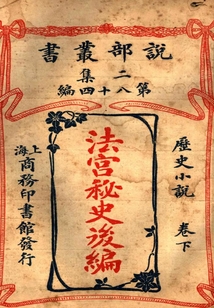 說部叢書
二集
第八十四編
歷史小說 卷下
法宮秘史後編
上海商務印書館發行